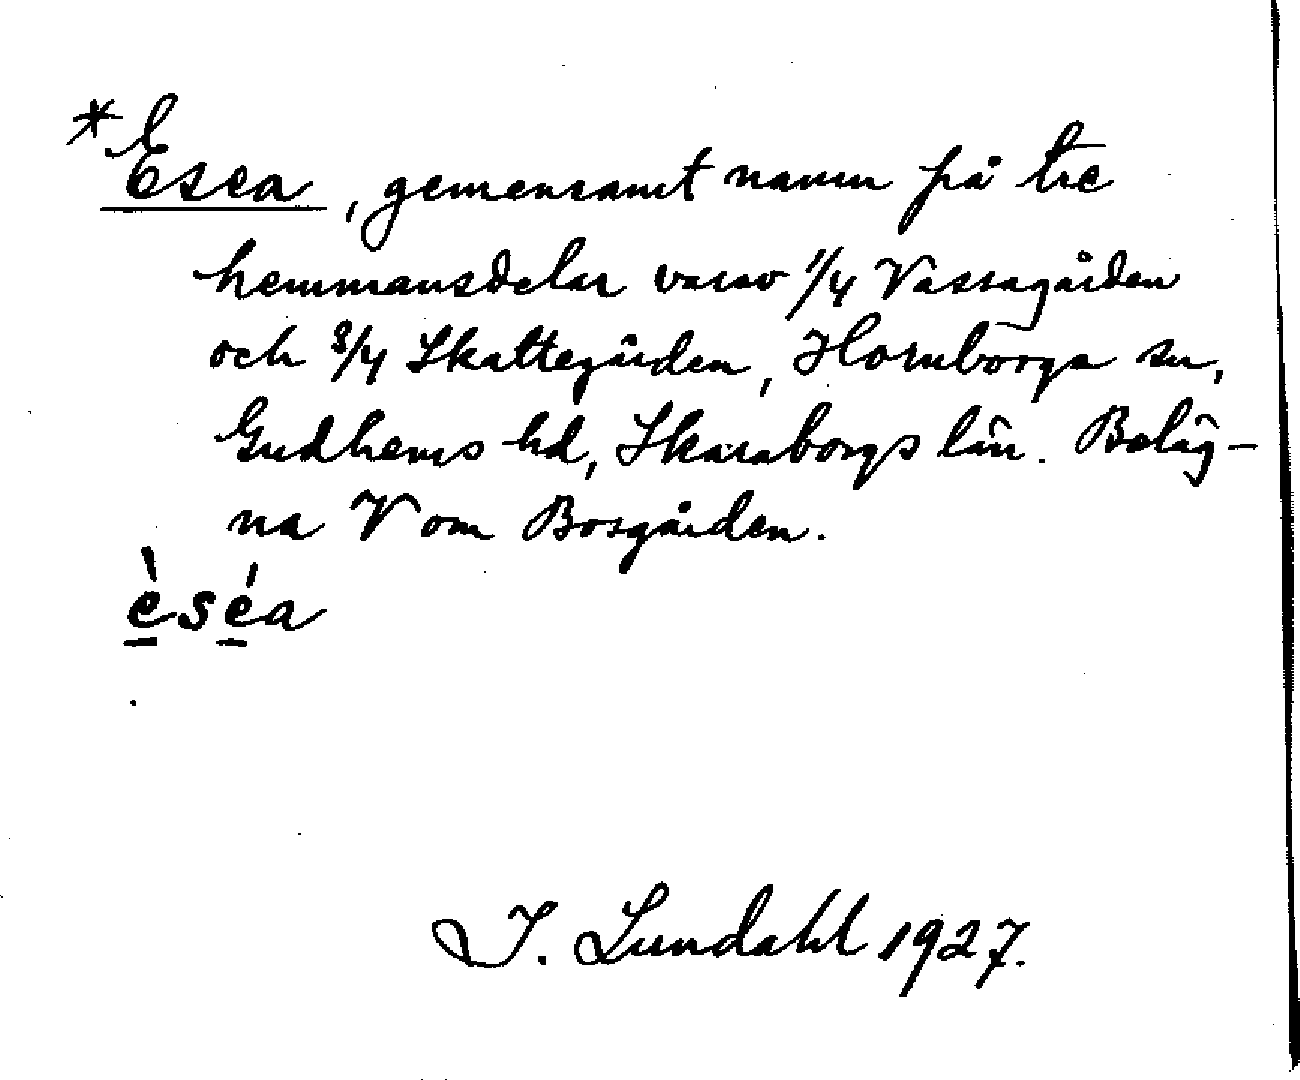 *Esea, gemensamt namn på tre
hemmansdelar varav 1/4 Vassagården
och 3/4 Skattegården, Hornborga sn,
Gudhems hd, Skaraborgs län. Beläg-
na V om Bosgården.
èséa
I. Lundahl 1927.